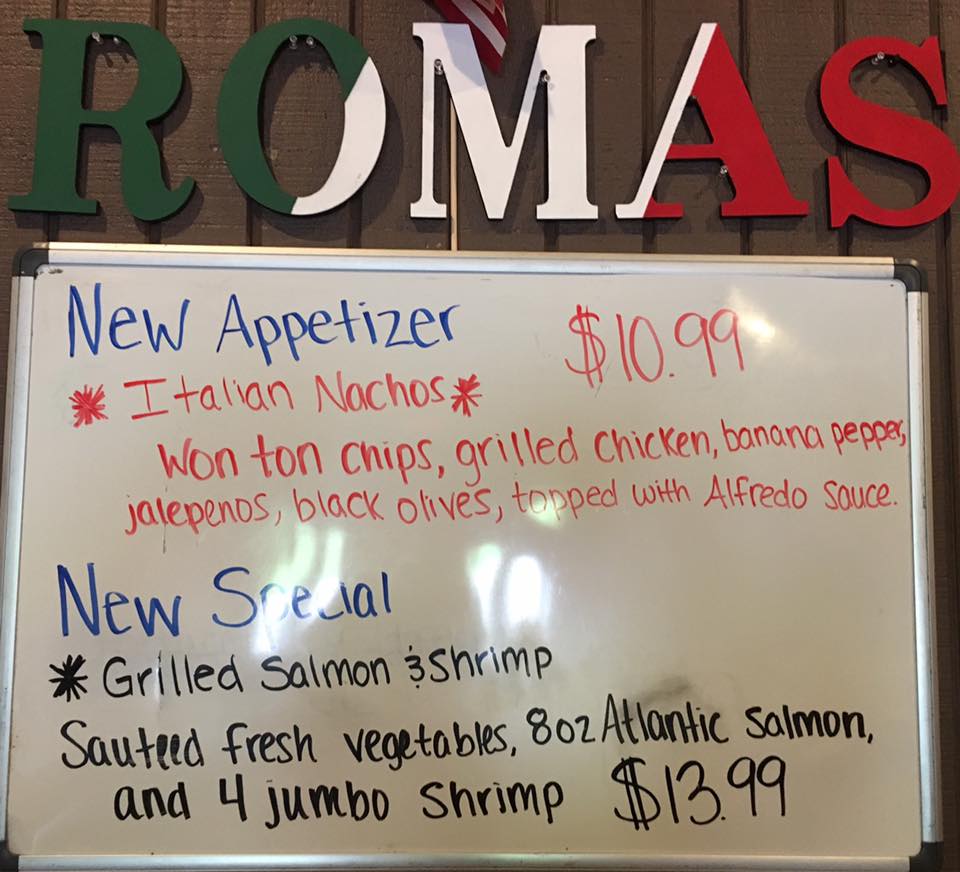 ROMAS
New Appetizer $10.99
* Italian Nachos *
Won ton chips, grilled chicken, banana pepper,
jalepenos, black olives, topped with Alfredo Sauce.
New Special
* Grilled Salmon & Shrimp
Sauteed fresh vegetables, 8oz Atlantic Salmon,
and 4 jumbo Shrimp $13.99